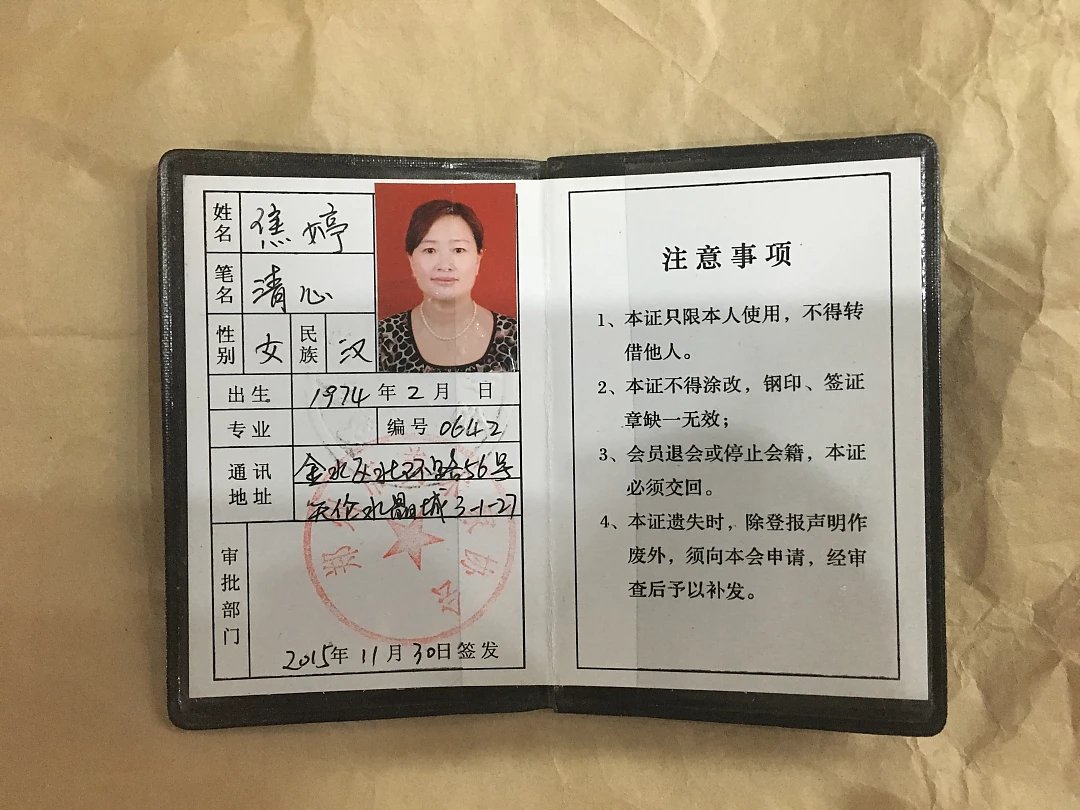 姓名 焦婷
笔名 清心
性别 女 民族 汉
出生 1974年2月 日
专业 编号 0642
通讯地址 金水区北环路56号
天伦水晶城3-1-27
审批部门
2015年11月30日签发
注意事项
1、本证只限本人使用，不得转
借他人。
2、本证不得涂改，钢印、签证
章缺一无效；
3、会员退会或停止会籍，本证
必须交回。
4、本证遗失时，除登报声明作
废外，须向本会申请，经审
查后予以补发。